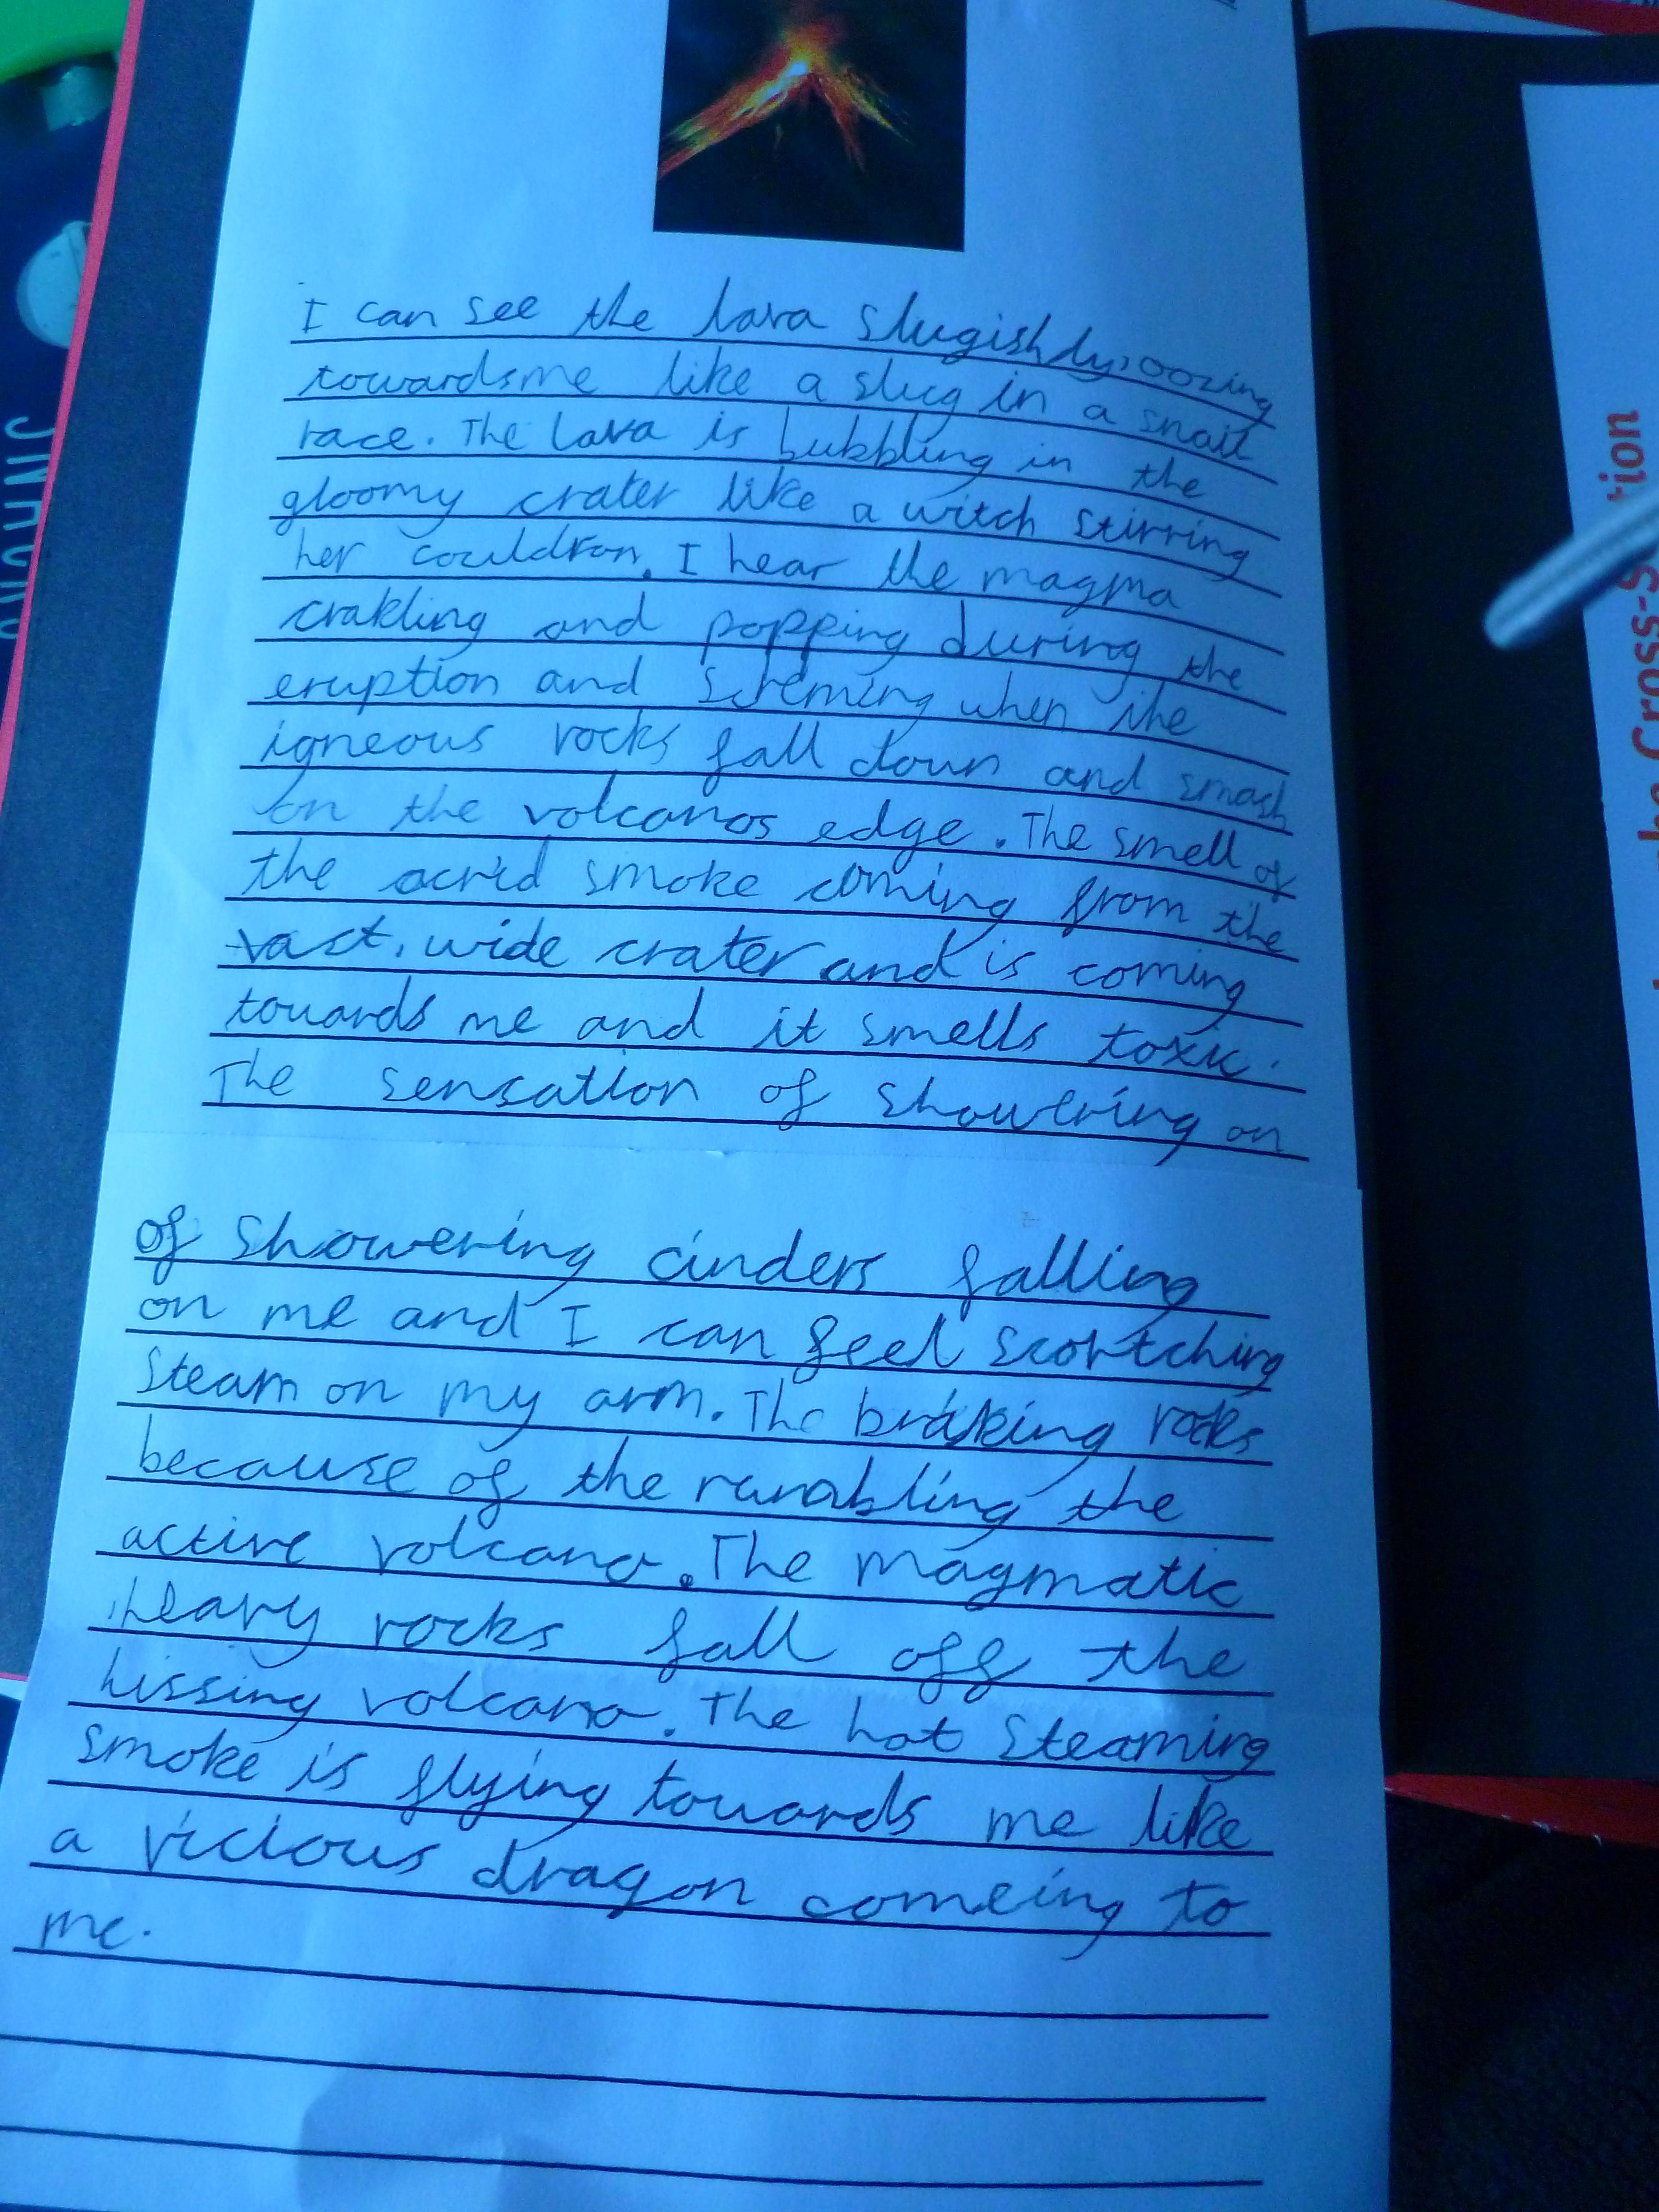 I can see the lava slugishly, oozing
towards me like a slug in a snail
race. The lava is bubbling in the
gloomy crater like a witch stirring
her couldron. I hear the magma
crakling and popping during the
eruption and screming when the
igneous rocks fall down and smash
on the volcanos edge. The smell of
the acrid smoke coming from the
vast, wide crater and is coming
towards me and it smells toxic.
The sensation of showering on
of showering cinders falling
on me and I can feel scortching
steam on my arm. The braking rocks
because of the rumbling the
active volcano. The magmatic
heavy rocks fall off the
hissing volcano. The hot steaming
smoke is flying towards me like
a vicious dragon comeing to
me.